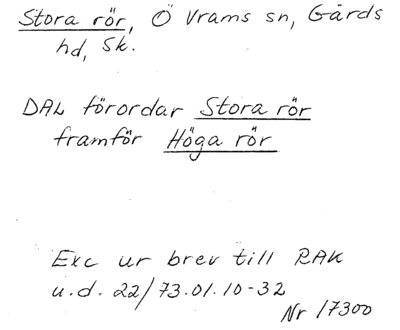 Stora rör, Ö Vrams sn, Gärds
hd, Sk.
DAL förordar Stora rör
framför Höga rör
Exc ur brev till RAK
u.d. 22/73.01.10-32
Nr 17300